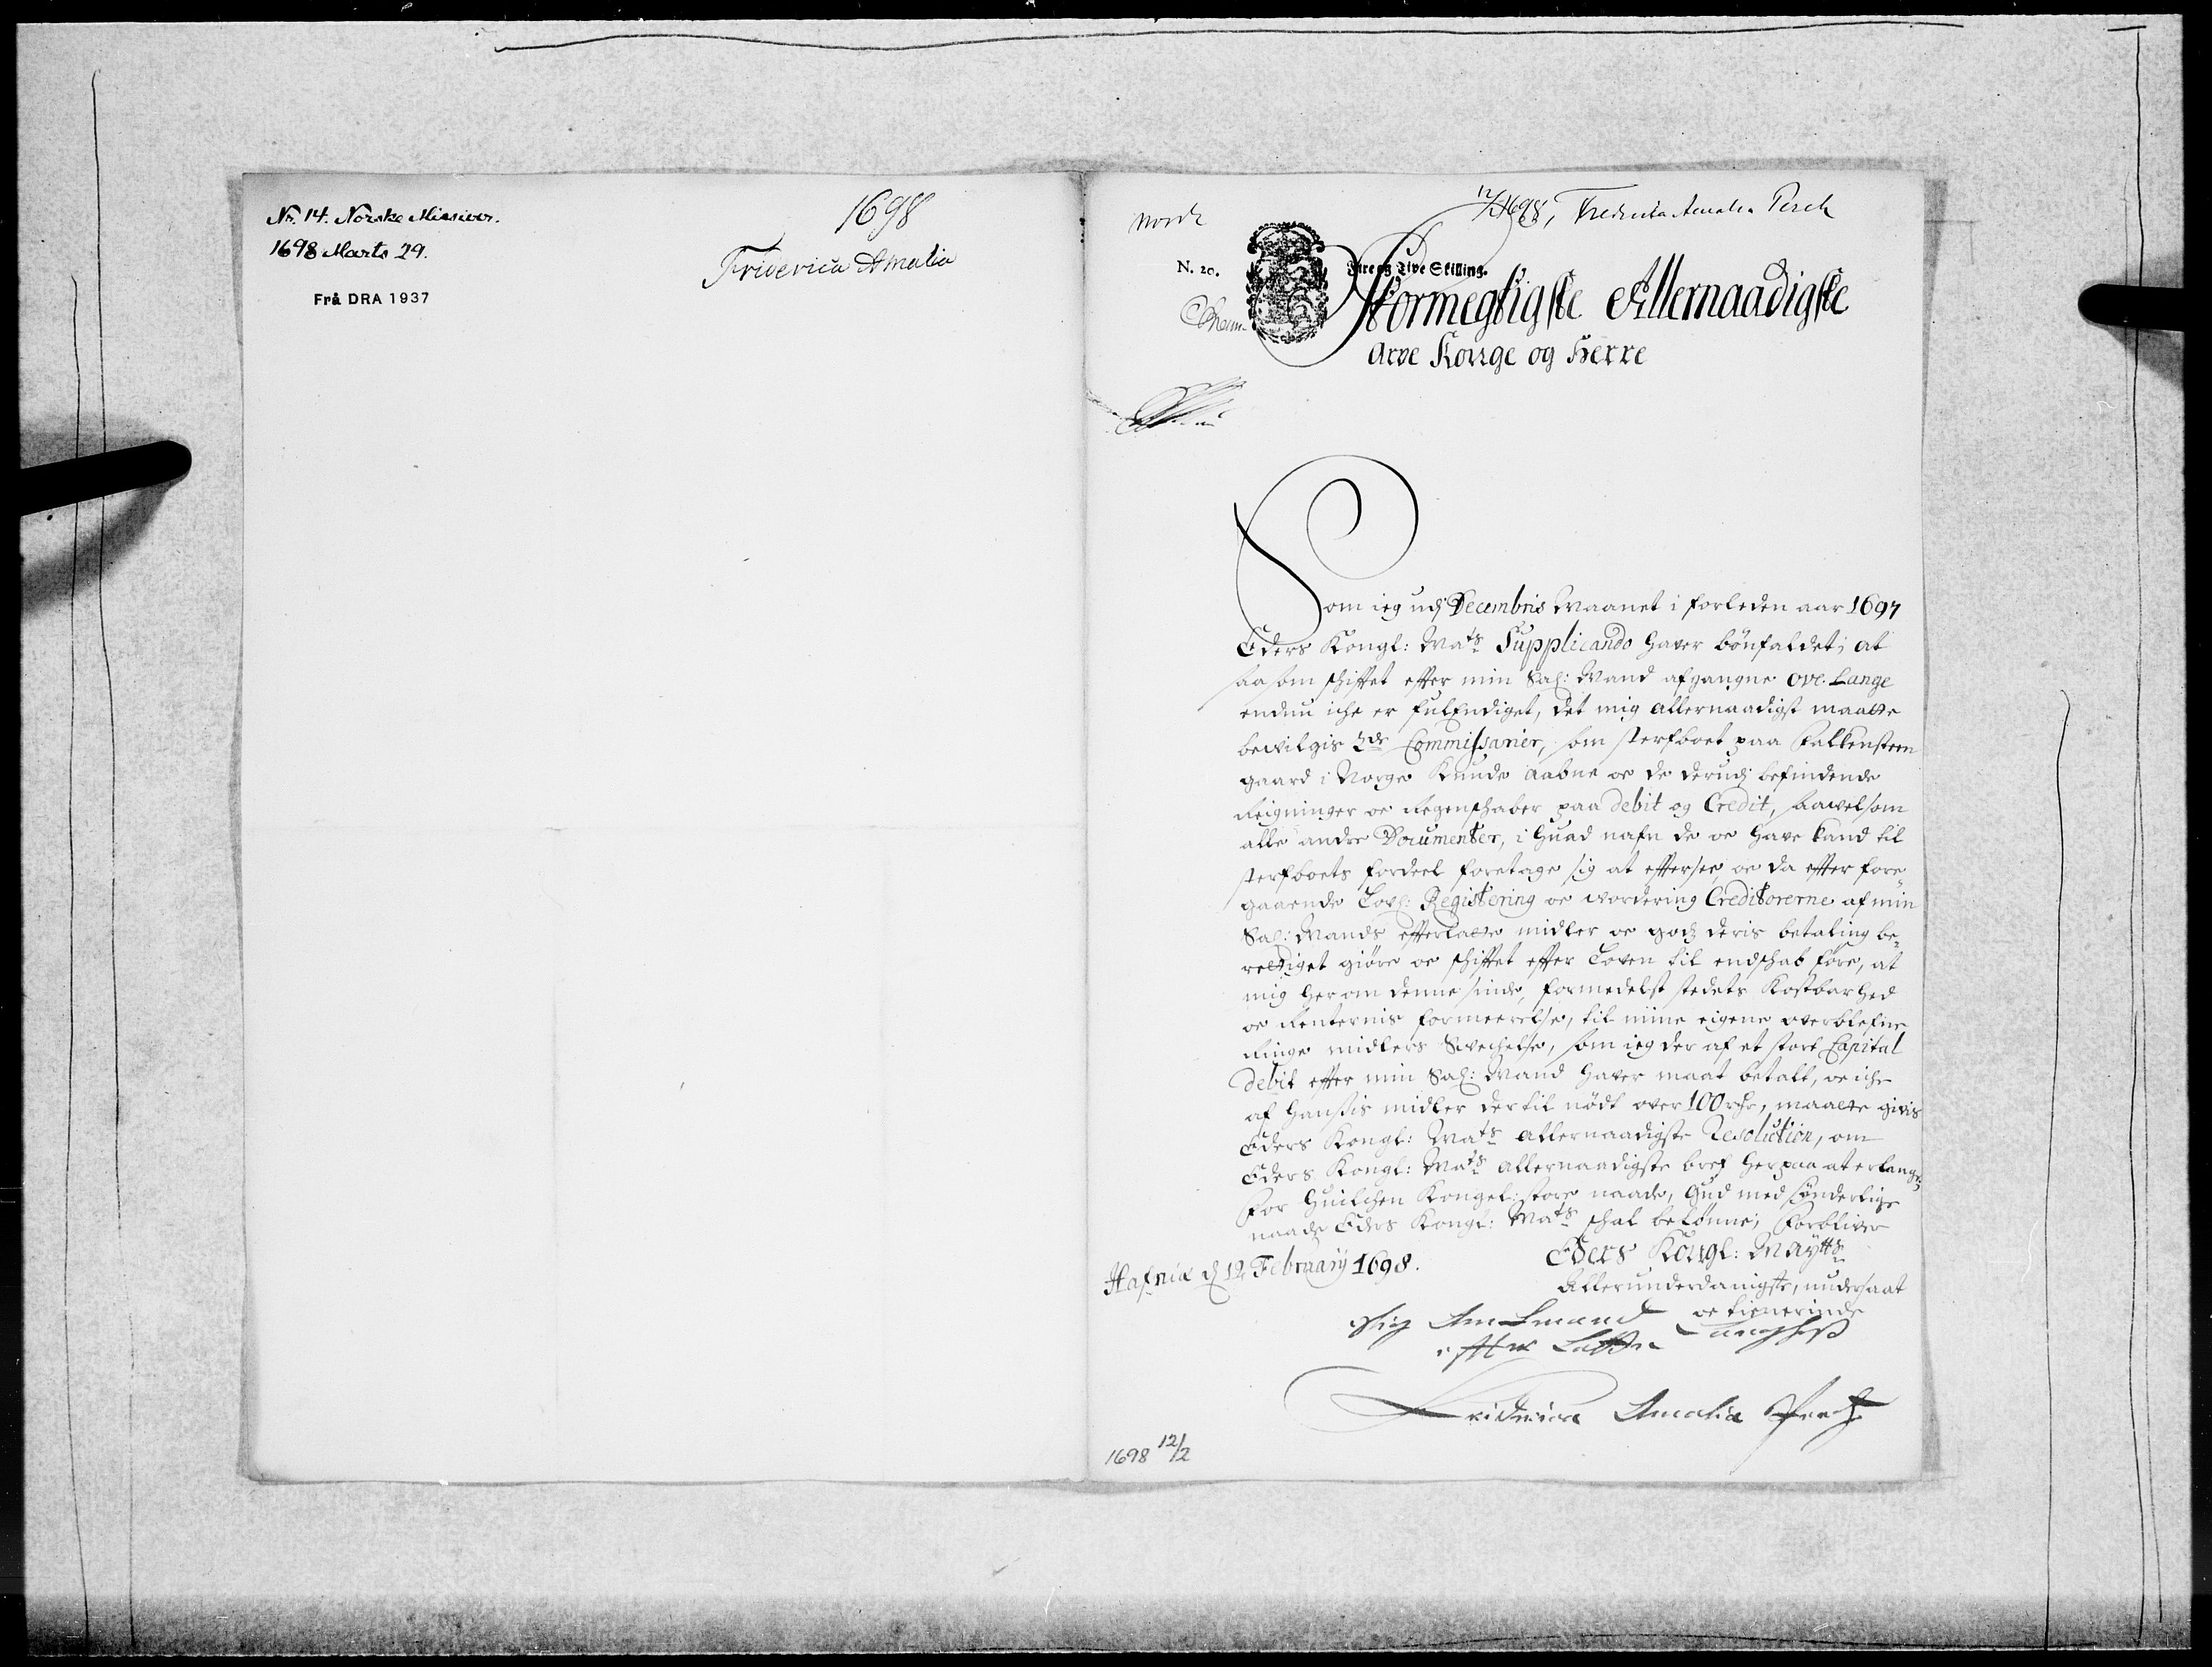 No. 14. Norske Missiver.
1698 Marts 29.
Frå DRA 1937
1698
Friderica Amalia
Norde
12/2 1698, Frederica Amalia Perch
N. 20.
Fire og Tive Skilling.
Stormegtigste Allernaadigste
Arve Konge og Herre
Som ieg udj Decembris Maanet i forleden aar 1697
Eders Kongl: Mats Supplicando haver bönfaldet; at
saasom skiftet efter min Sal: Mand afgangne Ove Lange
endnu iche er fulEndiget, det mig allernaadigst maatte
bevilgis 2de Commissarier, som sterfboet paa Falkensteen
gaard i Norge kunde aabne oc de derudj befindende
Reigninger oc Regenschaber paa debit og Credit, saavelsom
alle andre Documenter, i huad nafn de oc have kand til
sterfboets fordeel foretage sig at effersee, oc da efter fore-
gaaende Lovl: Registering oc vordering Creditorerne af min
Sal: Mands efterlatte midler oc gods deris betaling be-
rettiget giöre oc skiftet effter Loven til endschab före, at
mig her om denne sinde, formedelst stedets Kostbarhed
oc Renternis formeerelse, til mine eigene overblefne
Ringe midlers Svechelse, som ieg der af et stort Capital
debit efter min Sal: Mand haver maat betalt, oc iche
af hansis midler dertil nödt over 100 rdr, maatte givis
Eders Kongl: Mats allernaadigste Resolution, om
Eders Kongl: Mats allernaadigste bref herpaa at erlange
For huilchen Kongel: store naade, Gud med sönderlige
naade Eders Kongl: Mats schal belönne; Forbliver
Hafniæ d 12 February 1698.
Eders Kongl: Maytts
Allerunderdanigste, undersaat
oc tienerinde
Sig Amtmand
efter Latte
Friderica Amalia Perch
1698 12/2